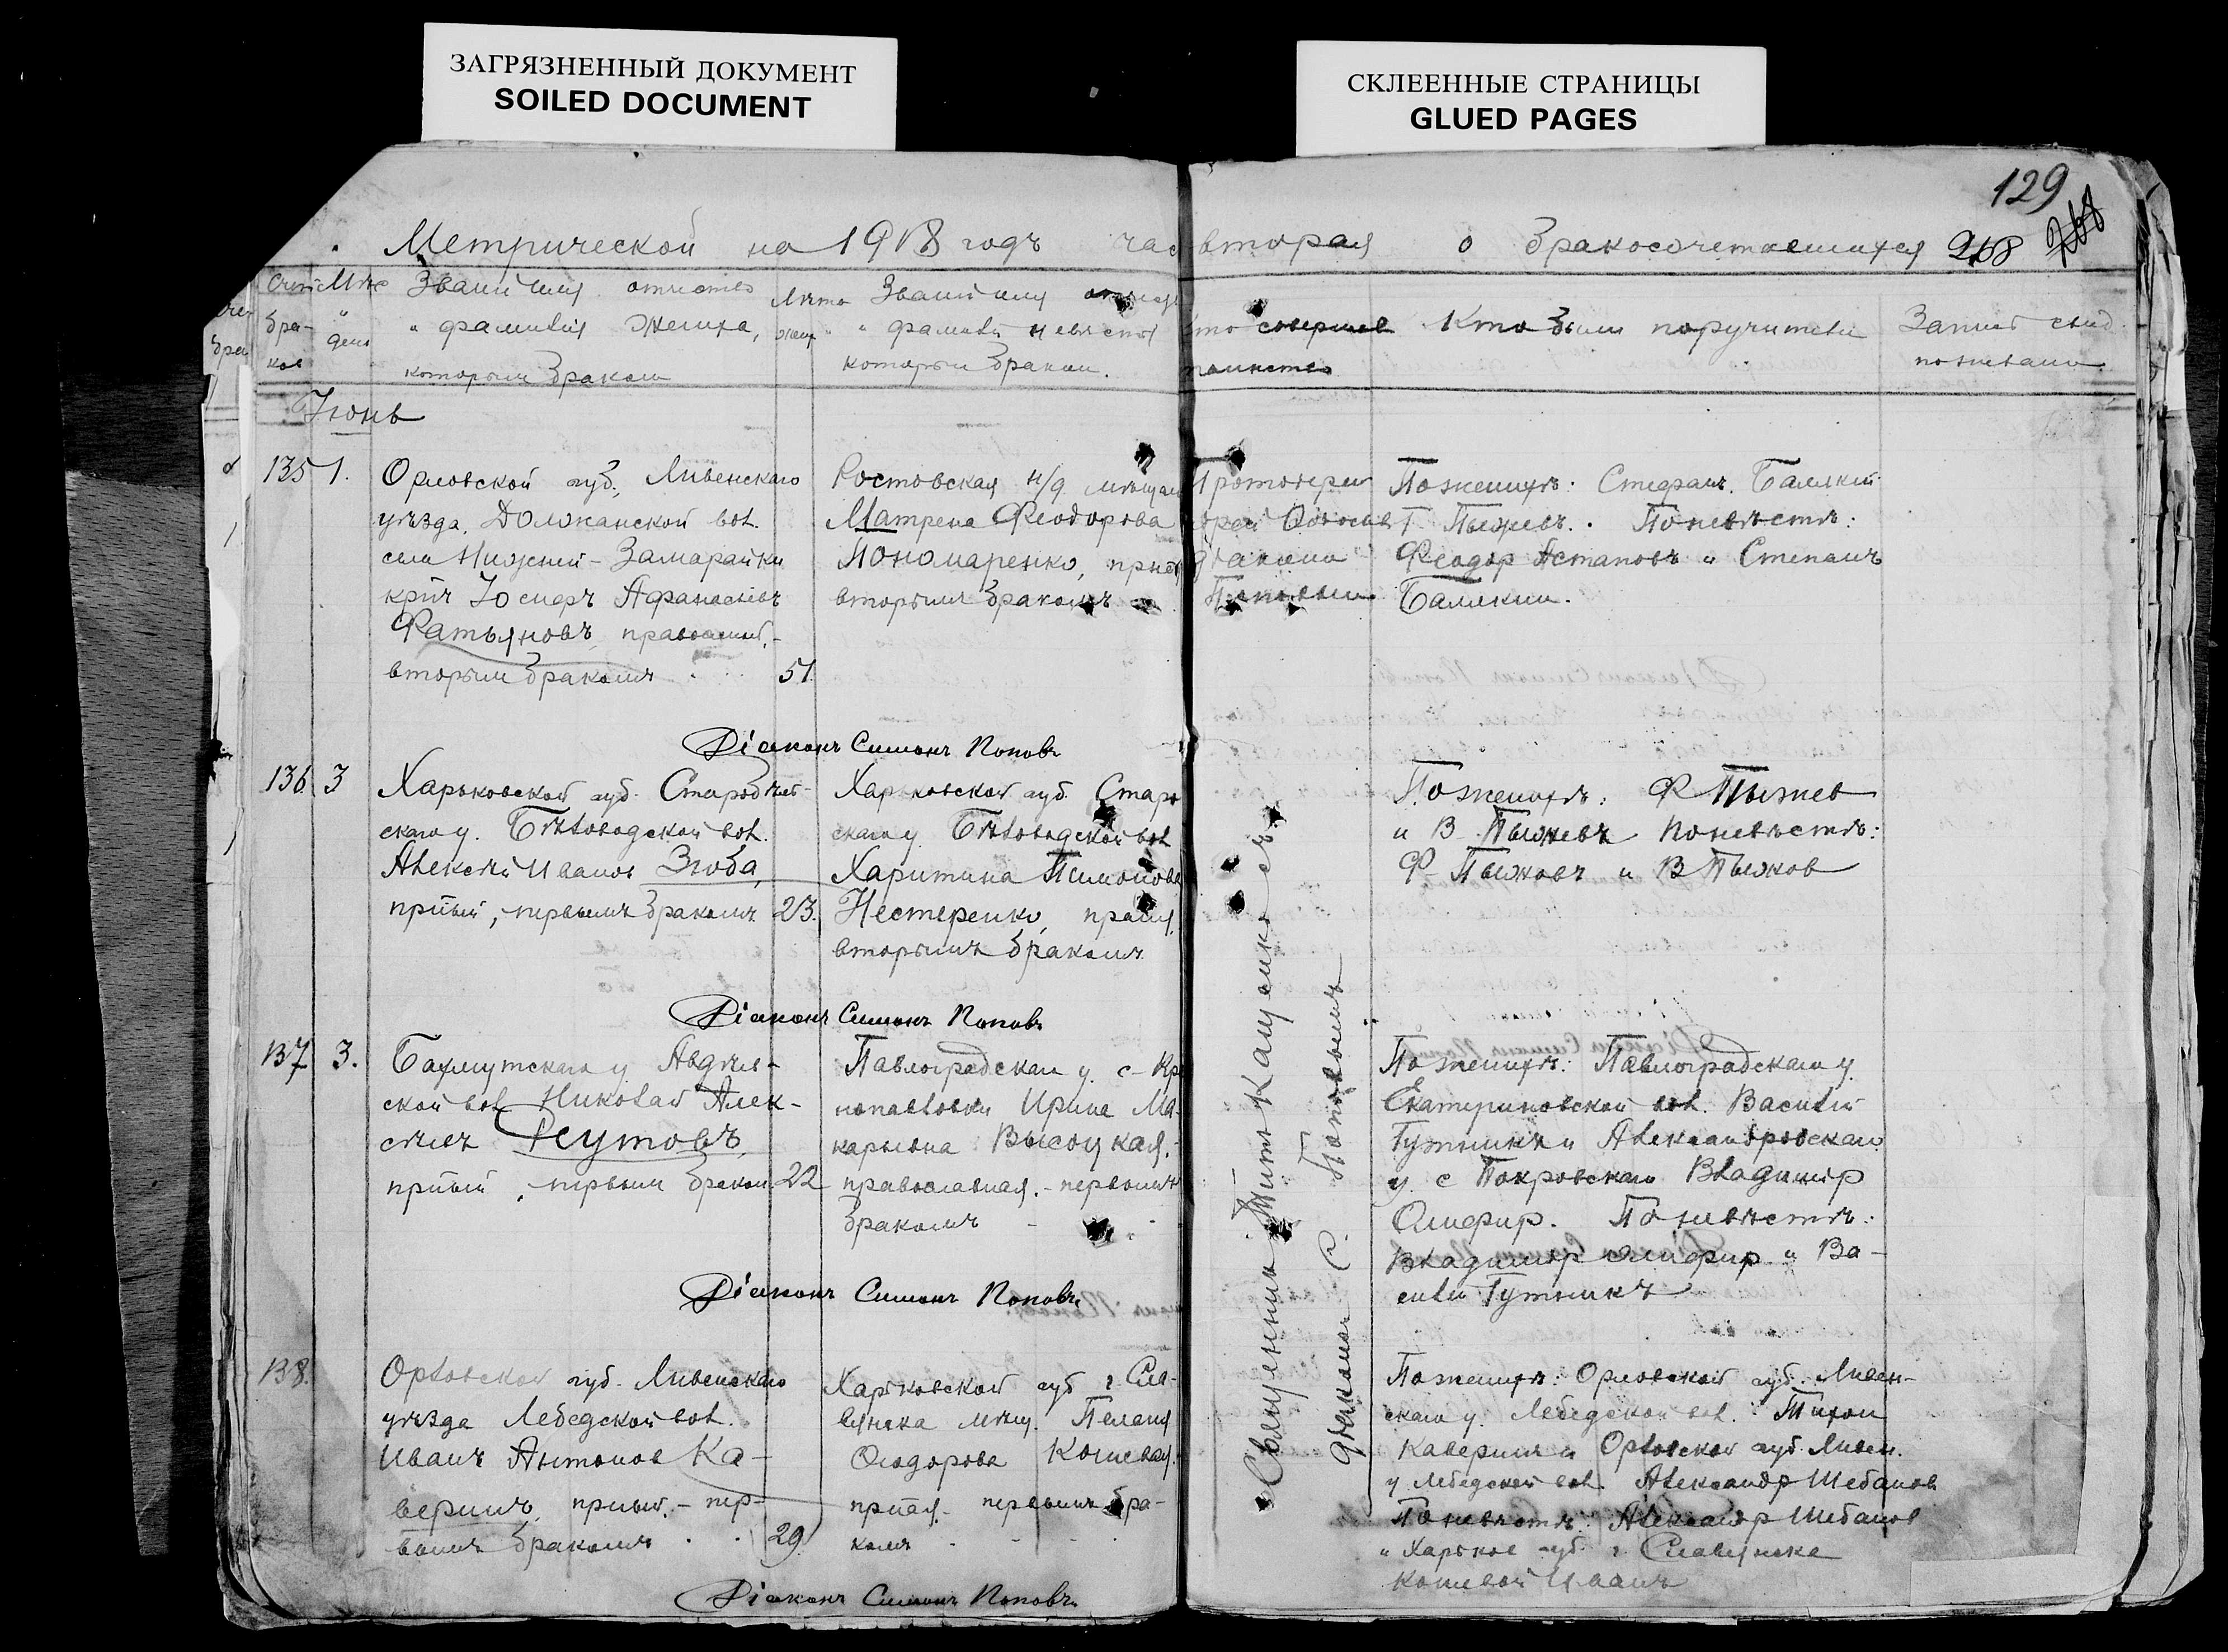 ЗАГРЯЗНЕННЫЙ ДОКУМЕНТ
SOILED DOCUMENT
СКЛЕЕННЫЕ СТРАНИЦЫ
GLUED PAGES
129
268
Метрической на 1918 годъ час
вторая о бракосочетавшихся
Званіе имя отчество
и фамилія жениха,
которым браком
Лѣта
жен
Званіе имя
и фамилі невѣсты
которым браком.
то соверша
таинство
Кто были поручители
Запис свид
по желанію
Іюнь
135 1.
Орловской губ., Ливенскаго
уѣзда, Должанской вол.
села Нижней-Замарайки
кр̃нъ Іосифъ Афанасіевъ
Фатьяновъ, православ.-
вторым бракомъ 51.
Ростовская н/д мѣщан
Матрена Феодорова
Пономаренко,
вторымъ бракомъ
Протоіерей
діакона
Поповым
По женихѣ: Стефанъ Балякин
Г. Пыжевъ. По невѣстѣ:
Феодор Астаповъ и Степанъ
Балякин.
Діаконъ Симонъ Поповъ
136 3
Харьковской губ. Старобѣль-
скаго у. Бѣловодской вол.
Алексѣй Иванов Зюба,
пр̃ный, первымъ бракомъ 23.
Харьковской губ. Старо
скаго у. Бѣловодской вол
Харитина Пимонова
Нестеренко,
вторымъ бракомъ
По женихѣ: Ф Пыжев
и В Пыжевъ По невѣстѣ:
Ф Пыжовъ и В Пыжов
Діаконъ Симонъ Поповъ
137 3.
Бахмутскаго у. Авдѣев-
ской вол Николай Алек-
сѣевъ Реутовъ,
пр̃ный, первым браком 22
Павлоградскаго у. с-
Ирина Ма-
карьевна Высоцкая,-
православная.- первымъ
бракомъ
По женихѣ: Павлоградскаго у.
Екатериновской вол. Василій
Гутникъ и Александровскаго
у. с Покровскаго Владимір
Омефир. По невѣстѣ:
Владимір Омефир и Ва-
силій Гутникъ
Священник Тит Кащенко съ
діакономъ С. Поповымъ
Діаконъ Симонъ Поповъ
138.
Орловской губ. Ливенскаго
уѣзда Лебедской вол.
Иванъ Антонов Ка-
веринъ, - пер-
вымъ бракомъ 29.
Харьковской губ г. Сла-
вянска мѣщ. Пелагія
Феодорова Кошевая,
пр̃ная- первымъ бра-
комъ
По женихѣ: Орловской губ. Ливен-
скаго у. Лебедской вол. Тихон
Каверинъ и Орловской губ. Ливен.
у Лебедской вол. Александр Шебанов
По невѣстѣ: Александр Шебанов
и Харьков губ. г. Славянска
Кошевой Иванъ
Діаконъ Симонъ Поповъ